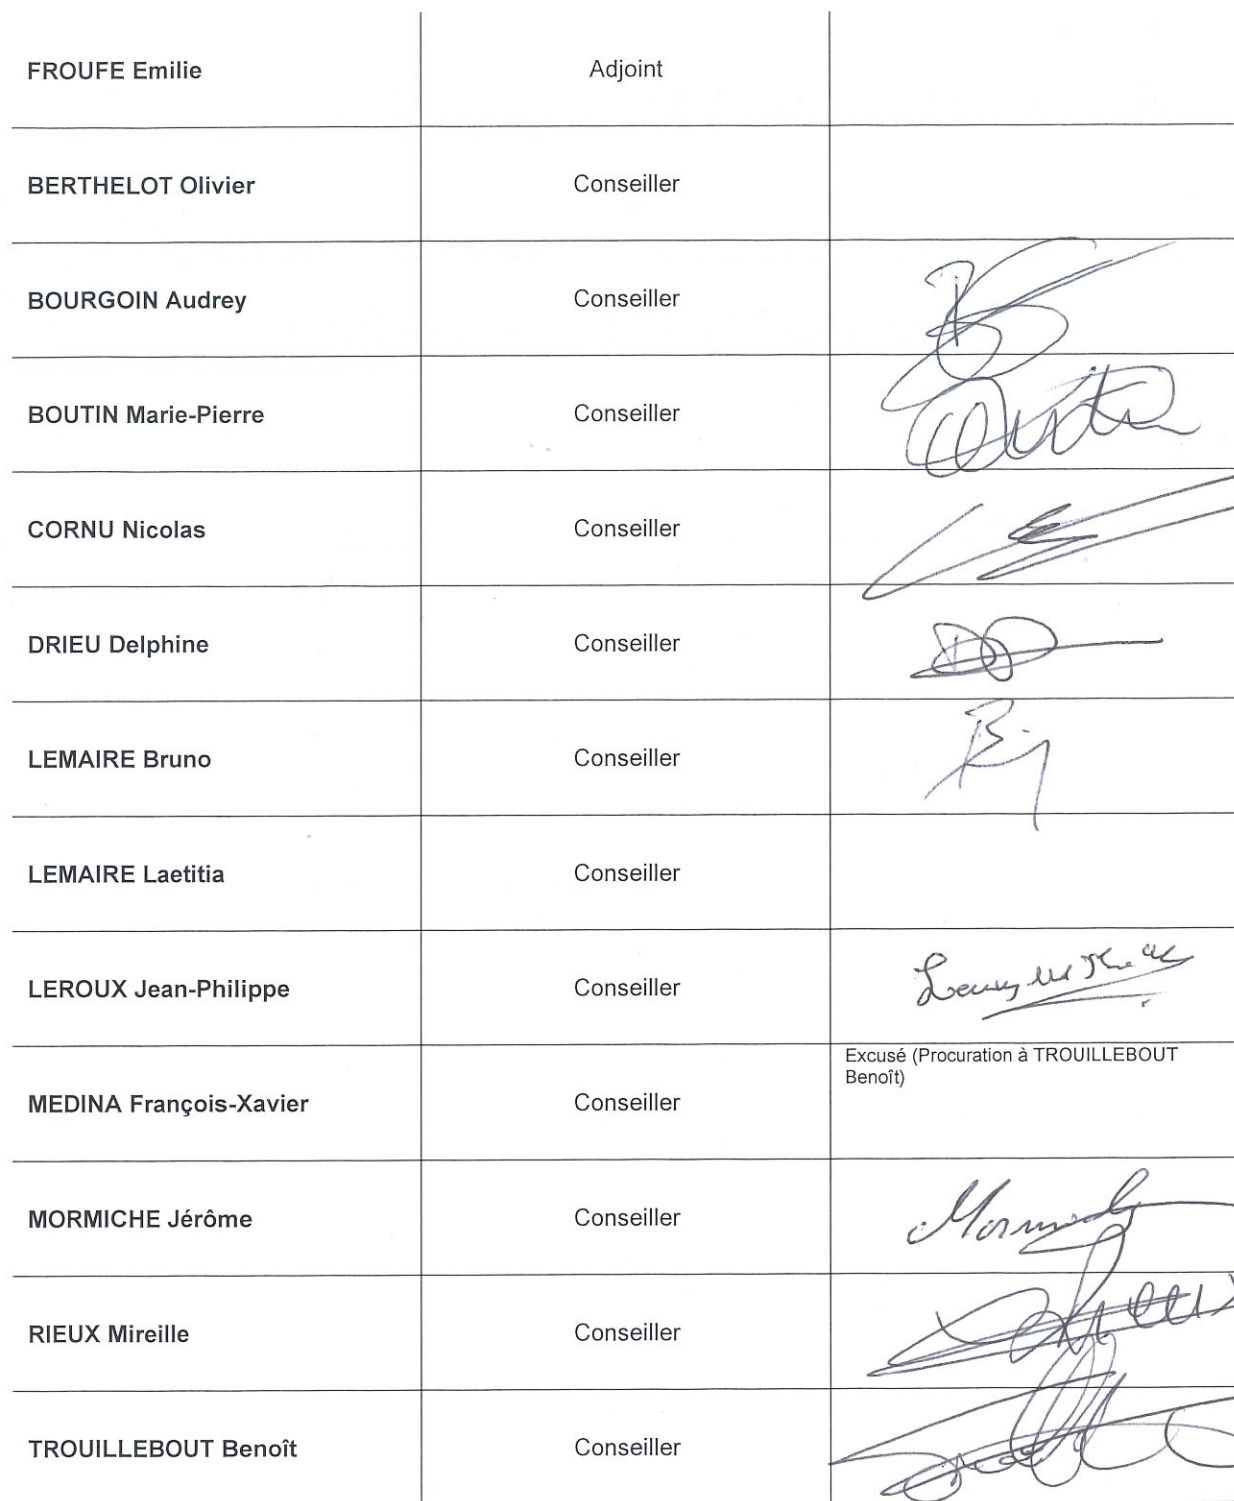 FROUFE Emilie Adjoint
BERTHELOT Olivier Conseiller
BOURGOIN Audrey Conseiller
BOUTIN Marie-Pierre Conseiller
CORNU Nicolas Conseiller
DRIEU Delphine Conseiller
LEMAIRE Bruno Conseiller
LEMAIRE Laetitia Conseiller
LEROUX Jean-Philippe Conseiller
Excusé (Procuration à TROUILLEBOUT
Benoît)
MEDINA François-Xavier Conseiller
MORMICHE Jérôme Conseiller
RIEUX Mireille Conseiller
TROUILLEBOUT Benoît Conseiller